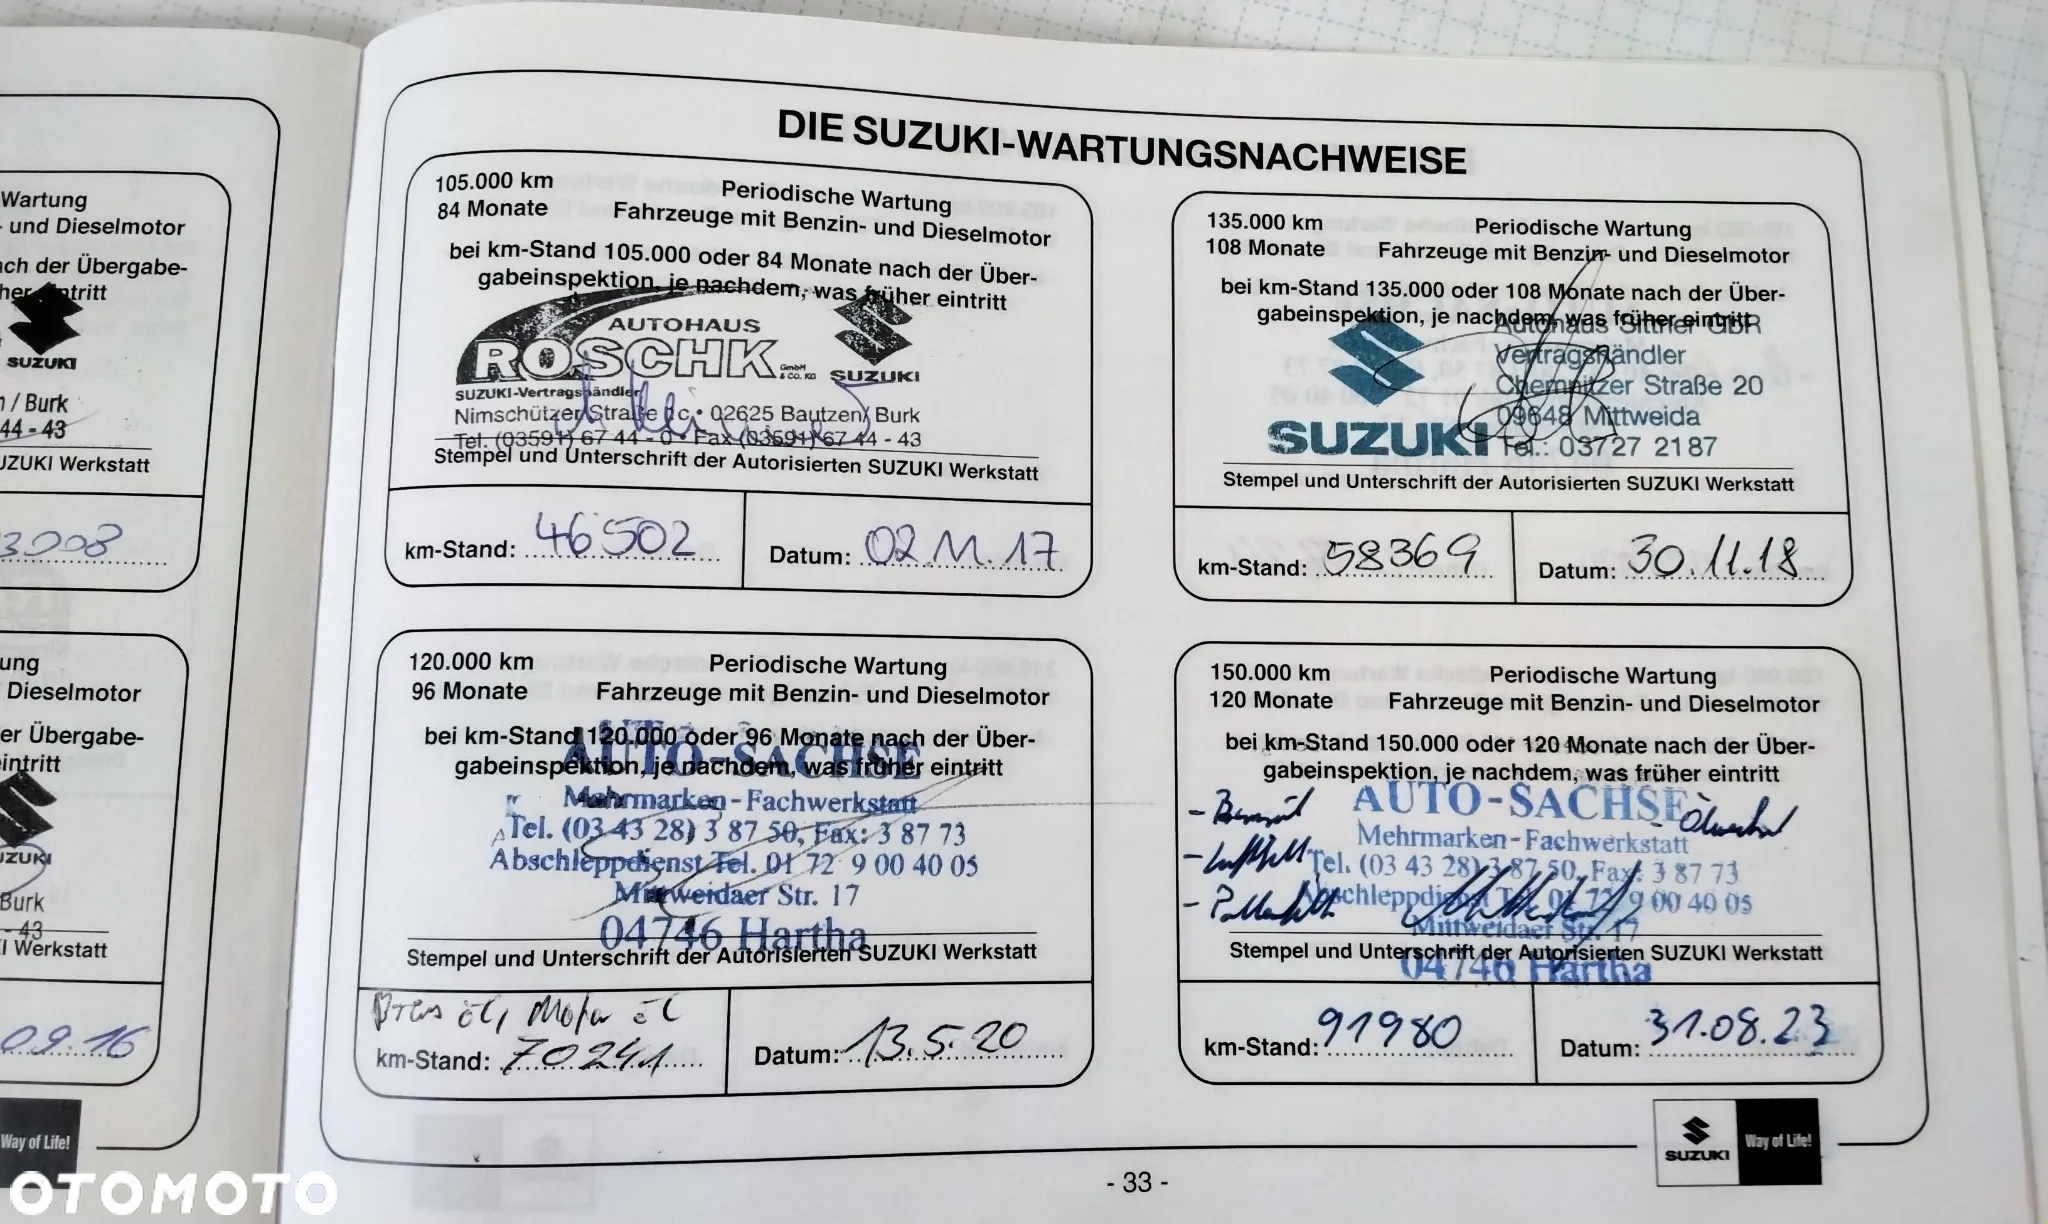 Wartung
- und Dieselmotor
ach der Übergabe-
her eintritt
SUZUKI
n / Burk
44 - 43
UZUKI Werkstatt
3008
ung
Dieselmotor
er Übergabe-
eintritt
UZUKI
Burk
- 43
I Werkstatt
09.16
Way of Life!
DIE SUZUKI-WARTUNGSNACHWEISE
105.000 km Periodische Wartung
84 Monate Fahrzeuge mit Benzin- und Dieselmotor
bei km-Stand 105.000 oder 84 Monate nach der Über-
gabeinspektion, je nachdem, was früher eintritt
AUTOHAUS
ROSCHK GmbH & CO. KG SUZUKI
SUZUKI-Vertragshändler
Nimschützer Straße 1c • 02625 Bautzen/ Burk
Tel. (03591) 67 44 - 0 • Fax (03591) 67 44 - 43
Stempel und Unterschrift der Autorisierten SUZUKI Werkstatt
km-Stand: 46502 Datum: 02.11.17
135.000 km Periodische Wartung
108 Monate Fahrzeuge mit Benzin- und Dieselmotor
bei km-Stand 135.000 oder 108 Monate nach der Über-
gabeinspektion, je nachdem, was früher eintritt
Autohaus Sittner GbR
Vertragshändler
Chemnitzer Straße 20
09648 Mittweida
SUZUKI Tel.: 03727 2187
Stempel und Unterschrift der Autorisierten SUZUKI Werkstatt
km-Stand: 58369 Datum: 30.11.18
120.000 km Periodische Wartung
96 Monate Fahrzeuge mit Benzin- und Dieselmotor
bei km-Stand 120.000 oder 96 Monate nach der Über-
gabeinspektion, je nachdem, was früher eintritt
AUTO-SACHSE
Mehrmarken-Fachwerkstatt
Tel. (03 43 28) 3 87 50, Fax: 3 87 73
Abschleppdienst Tel. 01 72 9 00 40 05
Mittweidaer Str. 17
04746 Hartha
Stempel und Unterschrift der Autorisierten SUZUKI Werkstatt
km-Stand: 70241 Datum: 13.5.20
150.000 km Periodische Wartung
120 Monate Fahrzeuge mit Benzin- und Dieselmotor
bei km-Stand 150.000 oder 120 Monate nach der Über-
gabeinspektion, je nachdem, was früher eintritt
AUTO-SACHSE - Ölwechsel
Mehrmarken-Fachwerkstatt
Tel. (03 43 28) 3 87 50, Fax: 3 87 73
- Pollenfilter
Abschleppdienst Tel. 01 72 9 00 40 05
Mittweidaer Str. 17
Stempel und Unterschrift der Autorisierten SUZUKI Werkstatt
04746 Hartha
km-Stand: 91980 Datum: 31.08.23
SUZUKI Way of Life!
- 33 -
OTOMOTO